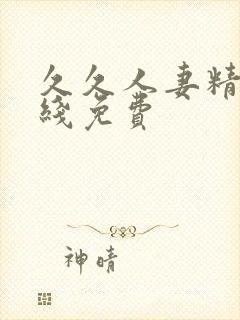 久久人妻精
綫免費
神晴